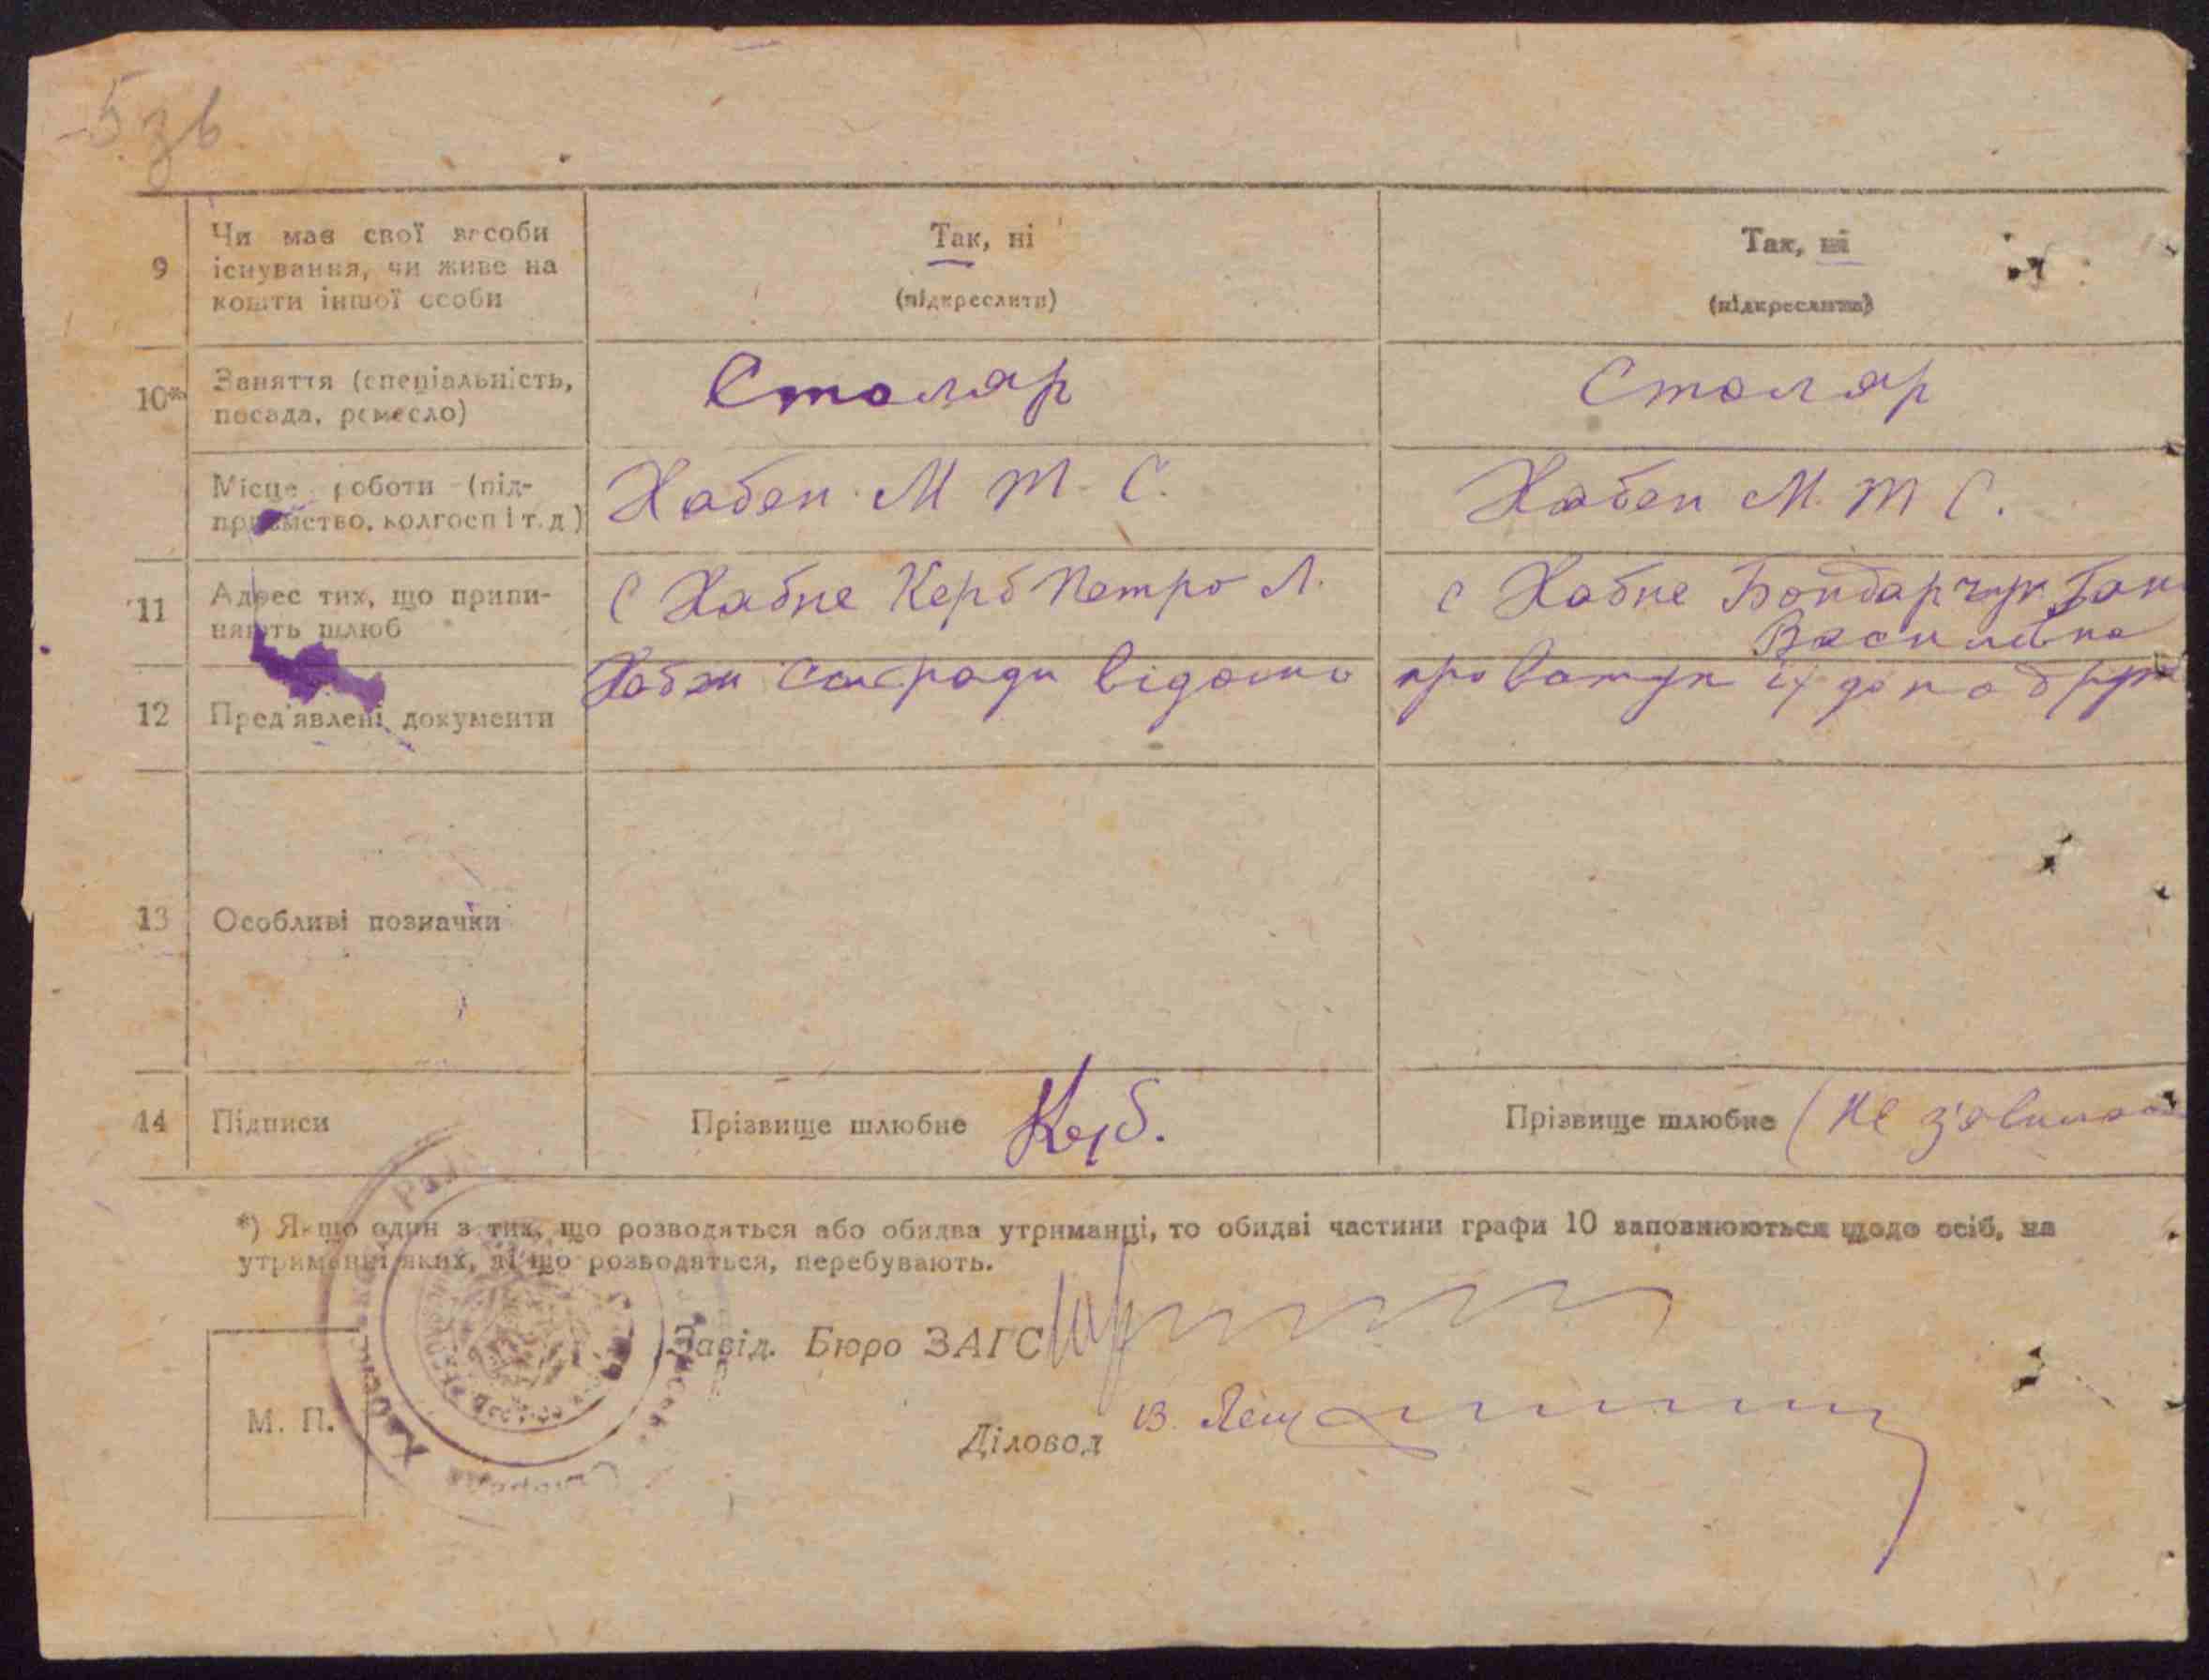 5 зв
9
Чи має свої засоби
існування, чи живе на
кошти іншої особи
Так, ні
(підкреслити)
Так, ні
(підкреслити)
10*)
Заняття (спеціальність,
посада, ремесло)
Столяр
Столяр
Місце роботи (під-
приємство, колгосп і т. д.)
Хабен М Т С.
Хабен М. Т С.
11
Адрес тих, що припи-
няють шлюб
С Хабне Керб Петро Л.
с Хабне Бондарчук Ган
Василівна
12
Пред'явлені документи
Хабен сільради відомо
про
їх до
13
Особливі позначки
14
Підписи
Прізвище шлюбне Керб.
Прізвище шлюбне (не
*) Якщо один з тих, що розводяться або обидва утриманці, то обидві частини графи 10 заповнюються щодо осіб, на
утриманні яких, ті що розводяться, перебувають.
Завід. Бюро ЗАГС
М. П.
Діловод